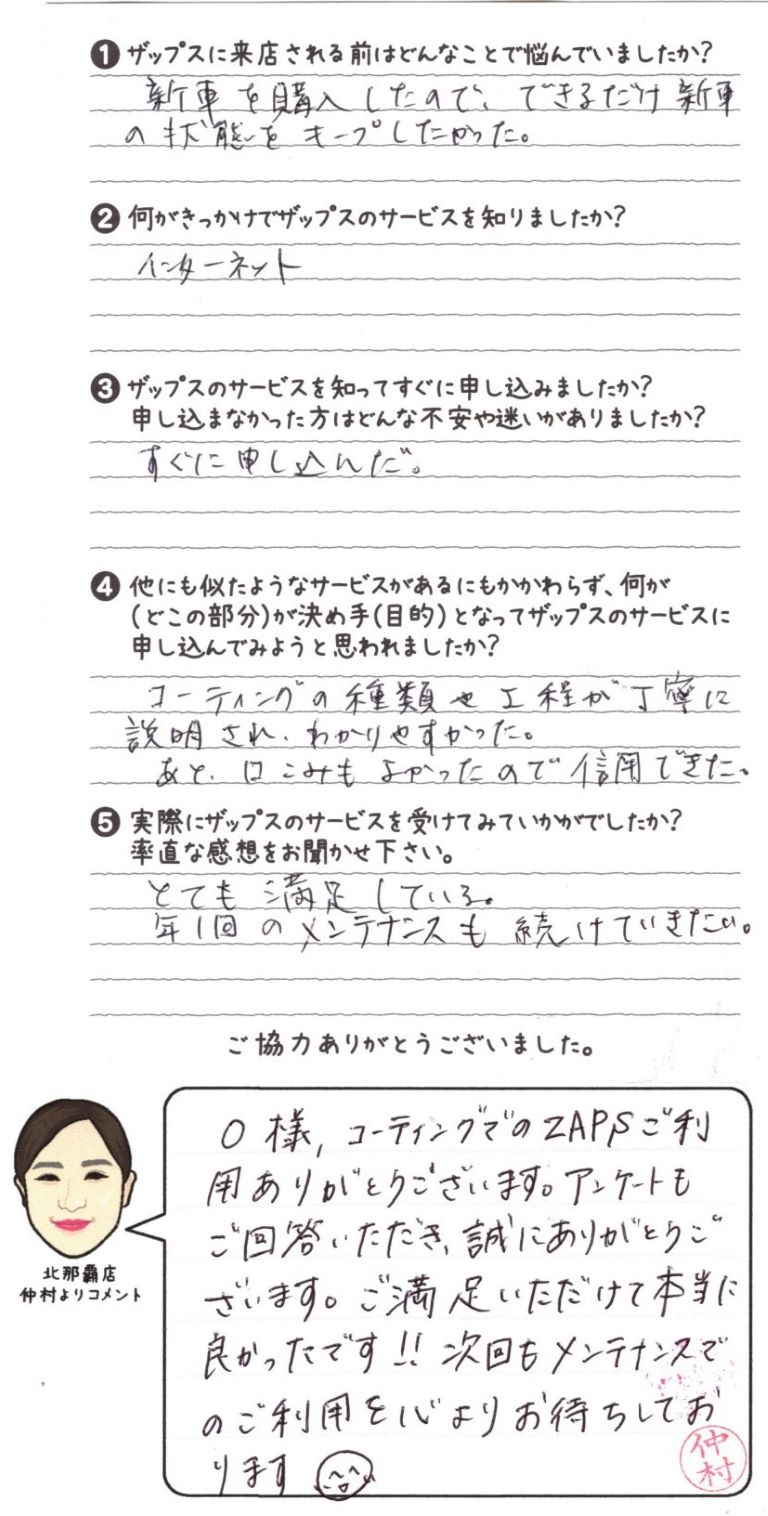 ❶ ザップスに来店される前はどんなことで悩んでいましたか?
新車を購入したので、できるだけ新車
の状態をキープしたかった。
❷ 何がきっかけでザップスのサービスを知りましたか?
インターネット
❸ ザップスのサービスを知ってすぐに申し込みましたか?
申し込まなかった方はどんな不安や迷いがありましたか?
すぐに申し込んだ。
❹ 他にも似たようなサービスがあるにもかかわらず、何が
(どこの部分)が決め手(目的)となってザップスのサービスに
申し込んでみようと思われましたか?
コーティングの種類や工程が丁寧に
説明され、わかりやすかった。
あと、口こみもよかったので信用できた。
❺ 実際にザップスのサービスを受けてみていかがでしたか?
率直な感想をお聞かせ下さい。
とても満足している。
年1回のメンテナンスも続けていきたい。
ご協力ありがとうございました。
O様, コーティングでのZAPSご利
用ありがとうございます。アンケートも
ご回答いただき、誠にありがとうご
ざいます。ご満足いただけて本当に
良かったです!! 次回もメンテナンスで
のご利用を心よりお待ちしてお
ります
北那覇店
仲村よりコメント
仲村